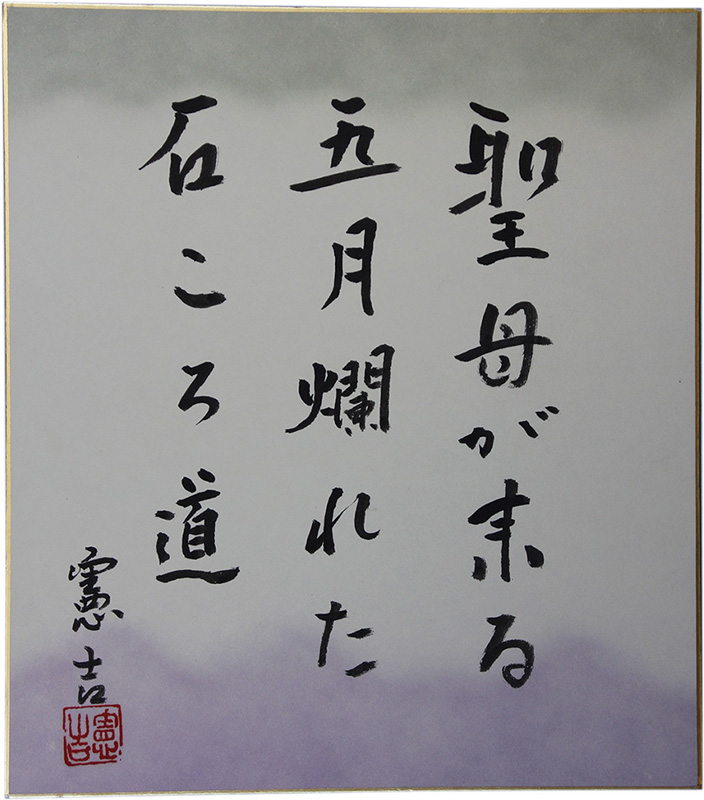 聖母が来る
五月爛れた
石ころ道
憲吉
憲吉